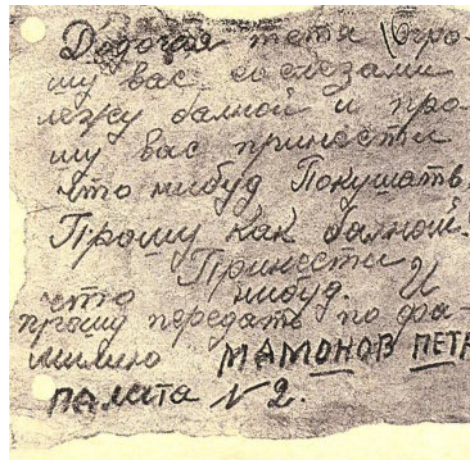 Дорогая тетя Про-
шу вас со слезами
лежу балной и про-
шу вас принести
что нибуд Покушать
Прошу как балной.
Принести
что нибуд. И
прошу передать по фа-
милию МАМОНОВ ПЕТР
ПАлата №2.